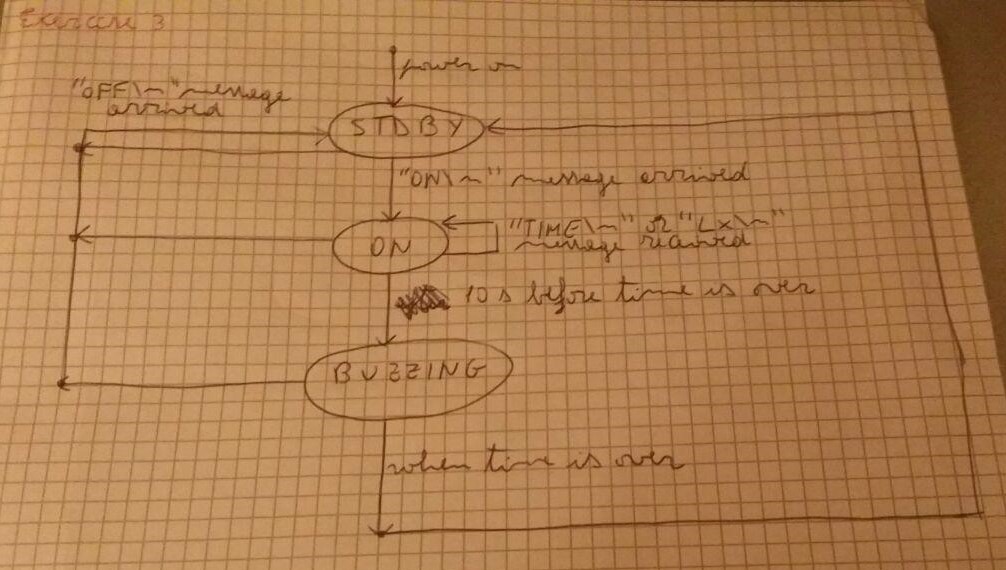 Exercise 3
power on
"OFF\n" message
arrived
STDBY
"ON\n" message arrived
"TIME\n" OR "Lx\n"
message received
ON
10s before time is over
BUZZING
when time is over